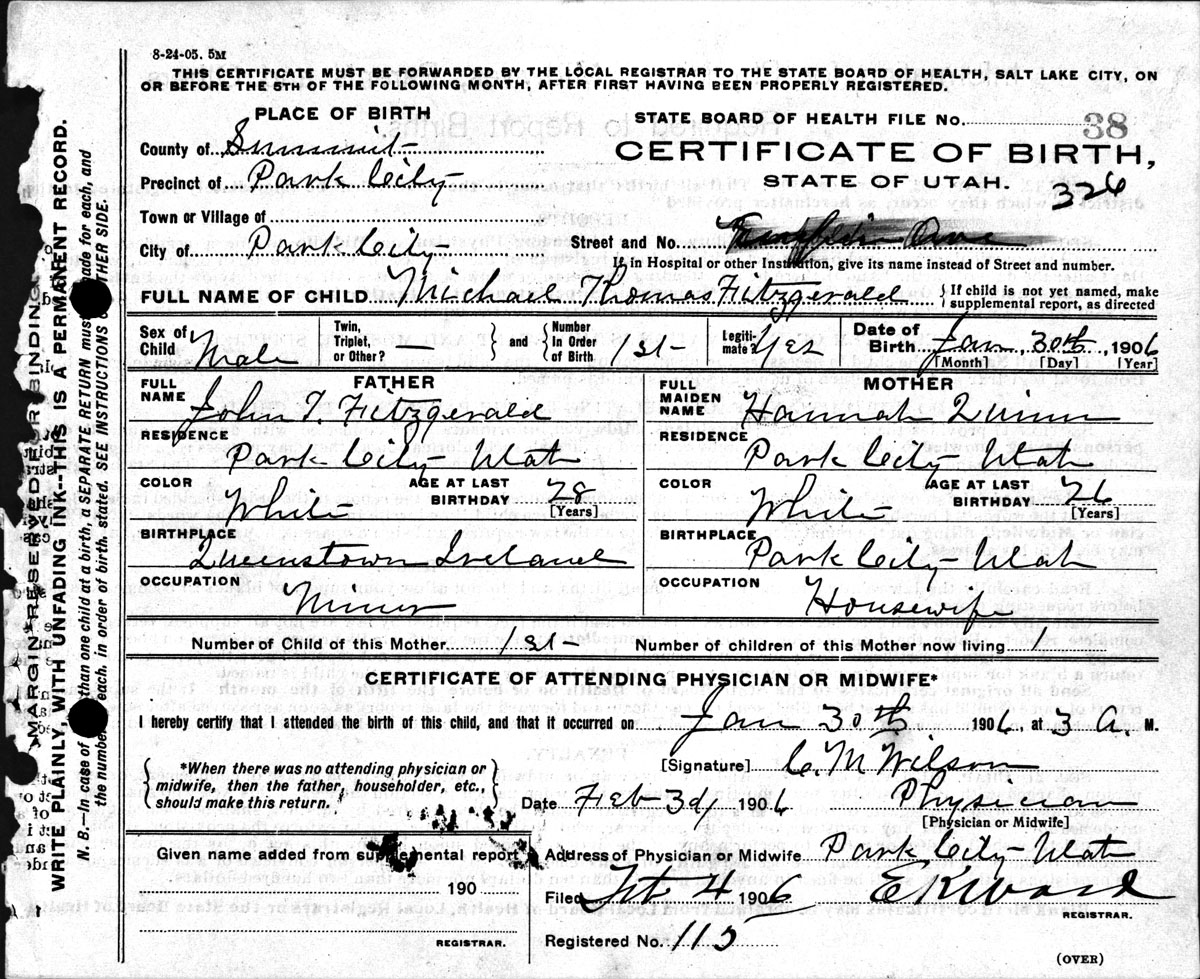 8-24-05. 5M
THIS CERTIFICATE MUST BE FORWARDED BY THE LOCAL REGISTRAR TO THE STATE BOARD OF HEALTH, SALT LAKE CITY, ON
OR BEFORE THE 5TH OF THE FOLLOWING MONTH, AFTER FIRST HAVING BEEN PROPERLY REGISTERED.
PLACE OF BIRTH
STATE BOARD OF HEALTH FILE No. 38
County of Summit
CERTIFICATE OF BIRTH,
Precinct of Park City
STATE OF UTAH. 326
Town or Village of
City of Park City Street and No. Ave
If in Hospital or other Institution, give its name instead of Street and number.
FULL NAME OF CHILD Michael Thomas Fitzgerald { If child is not yet named, make supplemental report, as directed
Sex of Child Male Twin, Triplet, or Other? — } and { Number In Order of Birth 1st Legitimate? Yes Date of Birth Jan, 30th, 1906
[Month] [Day] [Year]
FATHER
FULL NAME John T. Fitzgerald
RESIDENCE
Park City Utah
COLOR White AGE AT LAST BIRTHDAY 28 [Years]
BIRTHPLACE
Queenstown Ireland
OCCUPATION
Miner
MOTHER
FULL MAIDEN NAME Hannah Quinn
RESIDENCE
Park City Utah
COLOR White AGE AT LAST BIRTHDAY 26 [Years]
BIRTHPLACE Park City Utah
OCCUPATION
Housewife
Number of Child of this Mother 1st Number of children of this Mother now living 1
CERTIFICATE OF ATTENDING PHYSICIAN OR MIDWIFE*
I hereby certify that I attended the birth of this child, and that it occurred on Jan 30th 1906, at 3 A. M.
{ *When there was no attending physician or midwife, then the father, householder, etc., should make this return. }
[Signature] C. M. Wilson
Date Feb 3d 1906 Physician
[Physician or Midwife]
Given name added from supplemental report
190
REGISTRAR.
Address of Physician or Midwife Park City Utah
Filed 4 1906 E K Ward
REGISTRAR.
Registered No. 115
(OVER)
MARGIN RESERVED FOR BINDING.
WRITE PLAINLY, WITH UNFADING INK--THIS IS A PERMANENT RECORD.
N. B.—In case of than one child at a birth, a SEPARATE RETURN must made for each, and
the number each, in order of birth, stated. SEE INSTRUCTIONS OTHER SIDE.